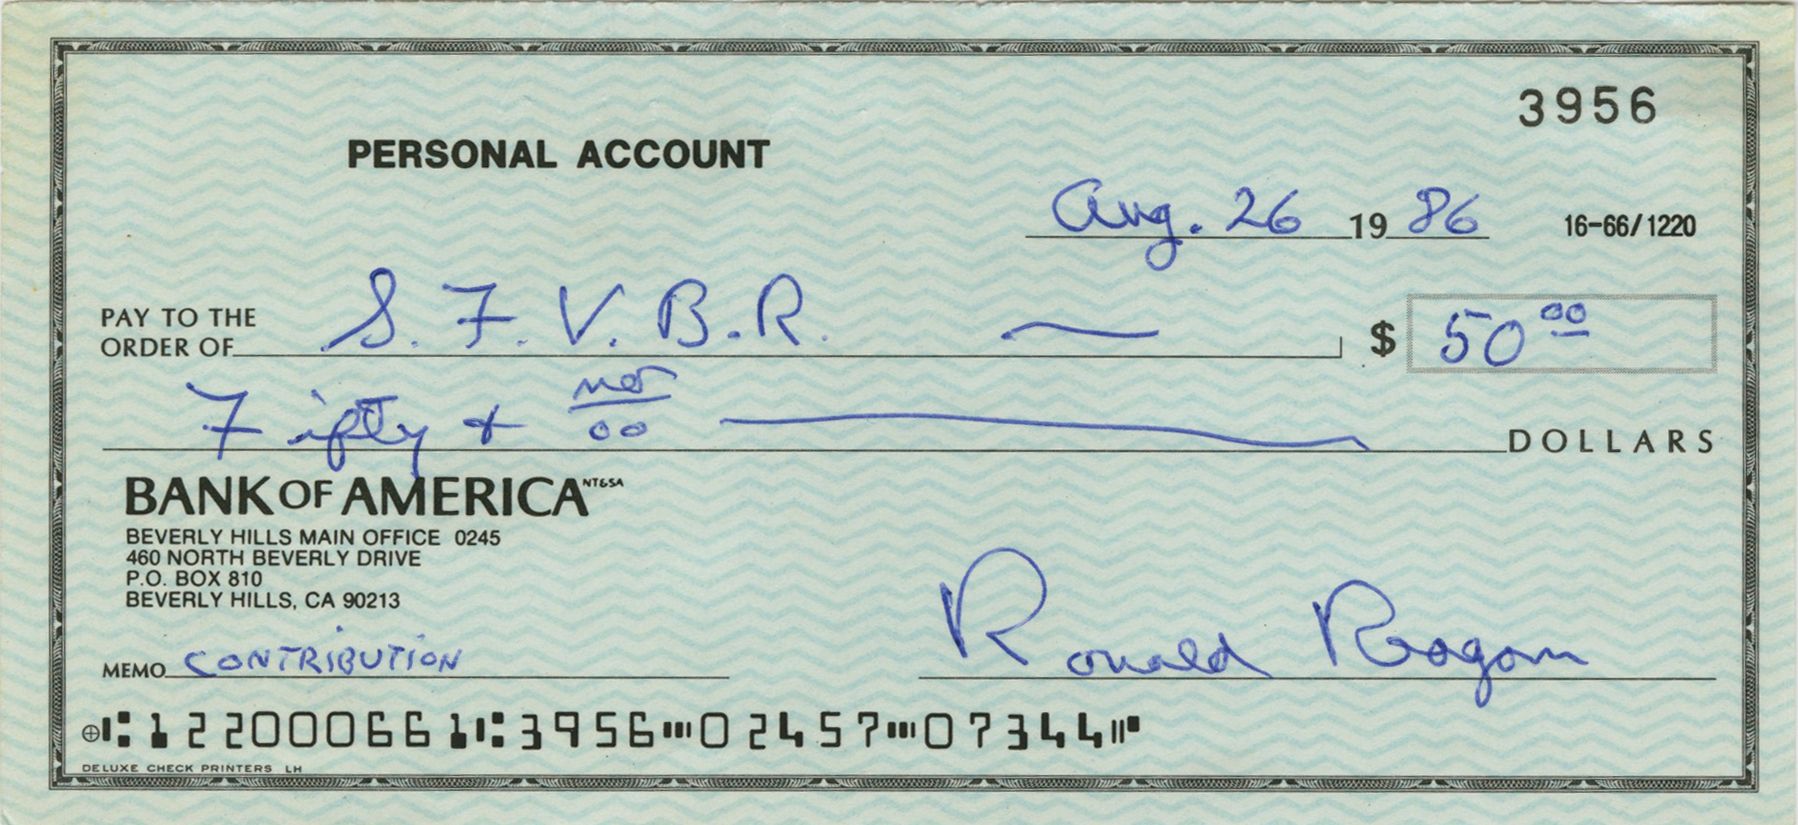 3956
PERSONAL ACCOUNT
Aug. 26 19 86 16-66/1220
PAY TO THE
ORDER OF S. F. V. B. R. — $ 50 00
Fifty & no/00 DOLLARS
BANK OF AMERICA NT&SA
BEVERLY HILLS MAIN OFFICE 0245
460 NORTH BEVERLY DRIVE
P.O. BOX 810
BEVERLY HILLS, CA 90213
MEMO CONTRIBUTION Ronald Reagan
⑆122000661⑆3956⑈02457⑈07344⑈
DELUXE CHECK PRINTERS LH